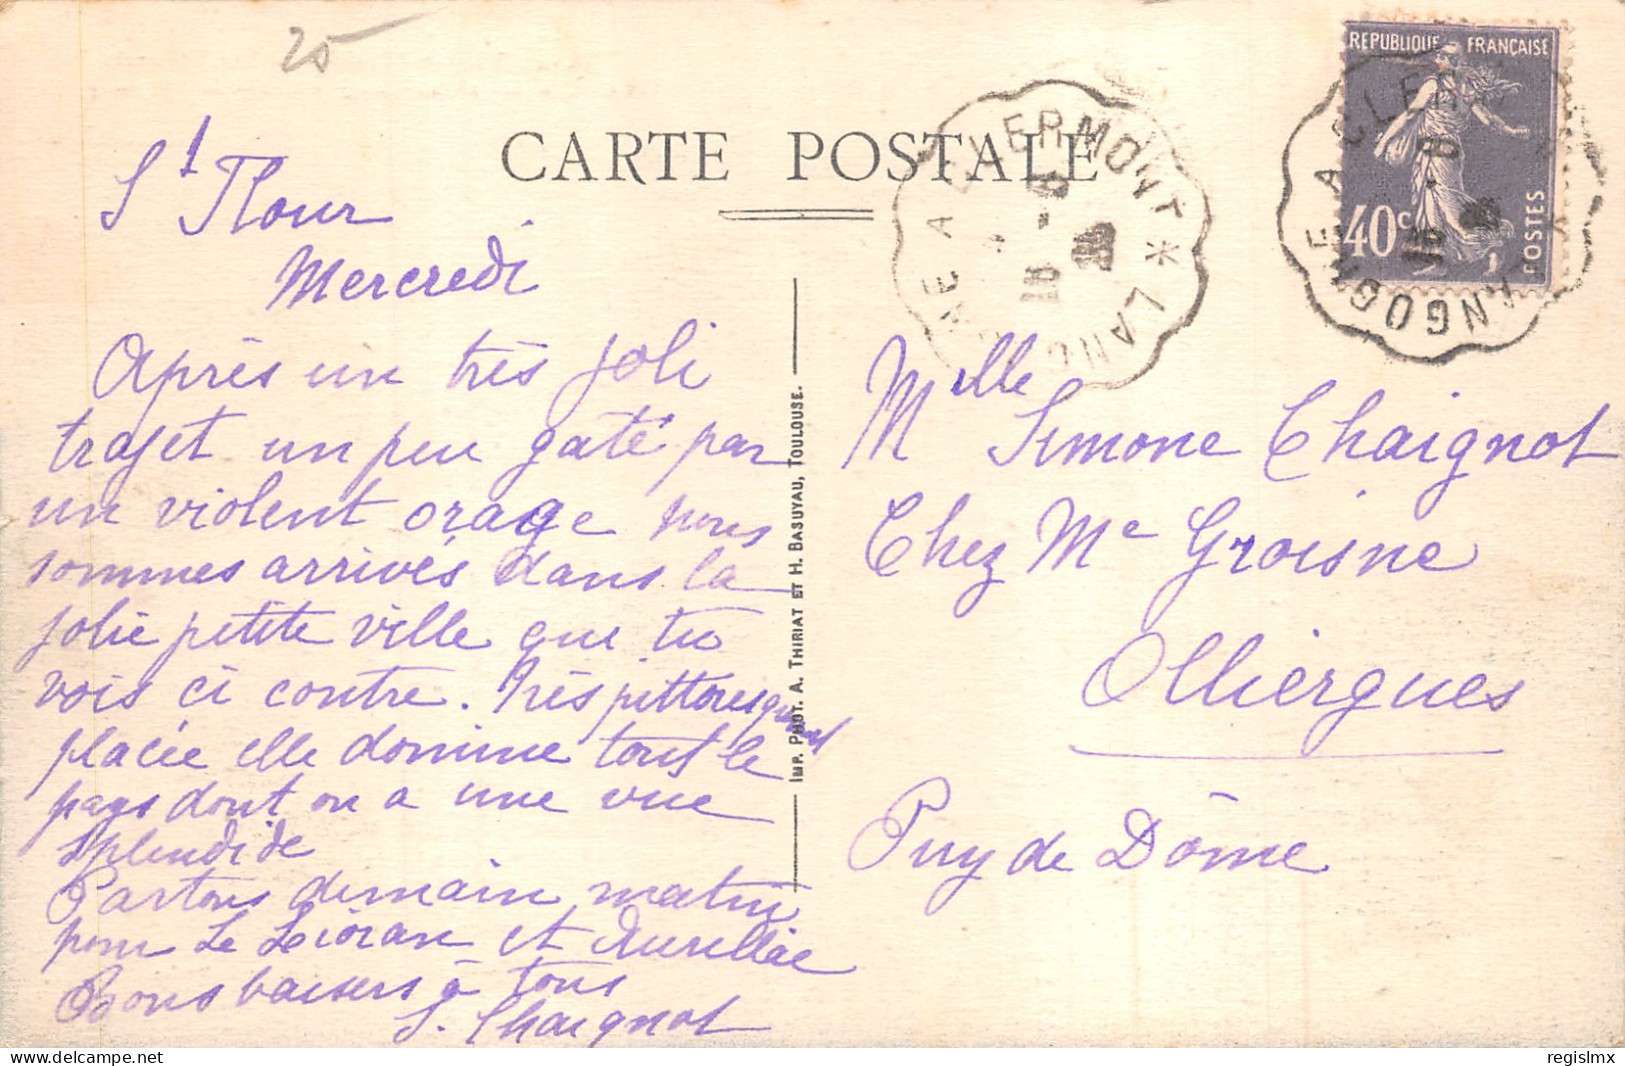 25
CARTE POSTALE
St Flour
Mercredi
Après un très joli
trajet un peu gaté par
un violent orage nous
sommes arrivés dans la
jolie petite ville que tu
vois ci contre. Très pittoresquement
placée elle domine tout le
pays dont on a une vue
splendide
Partons demain matin
pour Le Lioran et Aurillac
Bons baisers à tous
S. Chaignot
IMP. PHOT. A. THIRIAT ET H. BASUYAU, TOULOUSE.
LANGOGNE A CLERMONT *
REPUBLIQUE FRANÇAISE
40c
POSTES
LANGOGNE A CLER
Melle Simone Chaignot
Chez Me Groisne
Olliergues
Puy de Dôme
Delcampe.net
regislmx